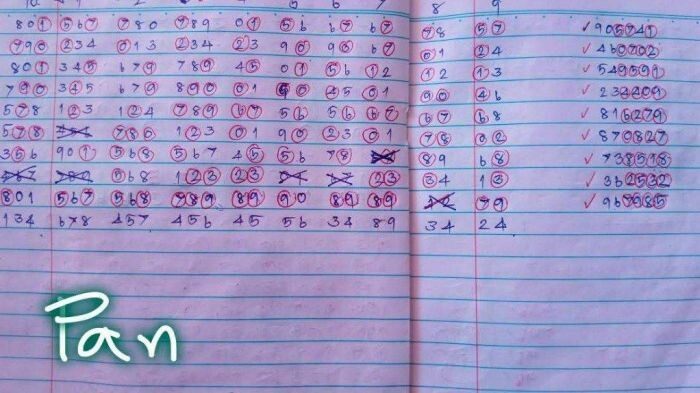 8 9
801 567 780 789 01 56 67 67 78 57 ✓ 905741
790 234 013 234 23 90 90 67 01 24 ✓ 460702
801 345 679 789 45 01 56 12 12 13 ✓ 549591
790 345 679 890 01 50 45 01 90 46 ✓ 234409
578 123 124 789 67 56 56 67 67 68 ✓ 816279
578 780 123 01 90 23 01 78 02 ✓ 870827
356 901 568 567 45 56 78 89 68 ✓ 738518
568 123 23 23 34 13 ✓ 362532
801 567 568 789 89 90 89 89 79 ✓ 967985
134 678 457 456 45 56 34 89 34 24
Pan